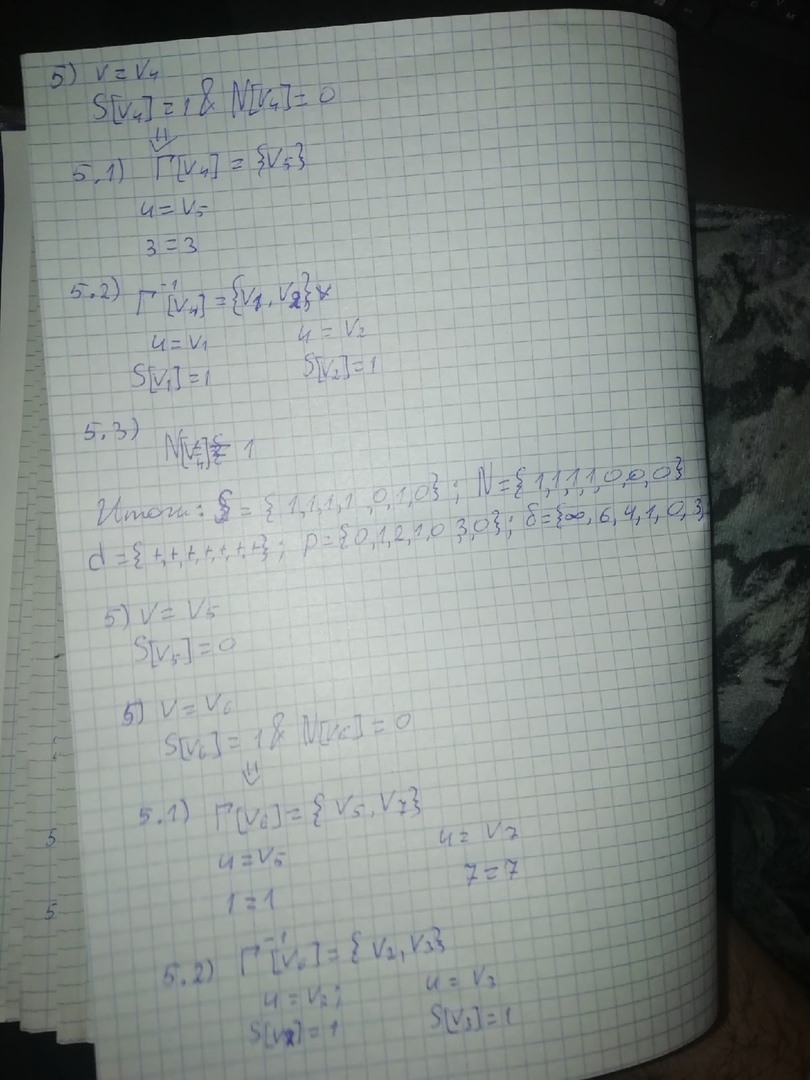 5) v = v₄
S[v₄] = 1 & N[v₄] = 0
⇓
5.1) Γ[v₄] = {v₅}
u = v₅
3 = 3
5.2) Γ⁻¹[v₄] = {v₁, v₂}
u = v₁ u = v₂
S[v₁] = 1 S[v₂] = 1
5.3) N[v₄] = 1
Итог: S = {1,1,1,1,0,1,0}; N = {1,1,1,1,0,0,0}
d = {+,+,+,+,+,+,+}; p = {0,1,2,1,0 3,0}; δ = {∞, 6, 4, 1, 0, 3,
5) v = v₅
S[v₅] = 0
5) v = v₆
S[v₆] = 1 & N[v₆] = 0
⇓
5.1) Γ[v₆] = {v₅, v₇}
u = v₅ u = v₇
1 = 1 7 = 7
5.2) Γ⁻¹[v₆] = {v₂, v₃}
u = v₂; u = v₃
S[v₂] = 1 S[v₃] = 1
5
5